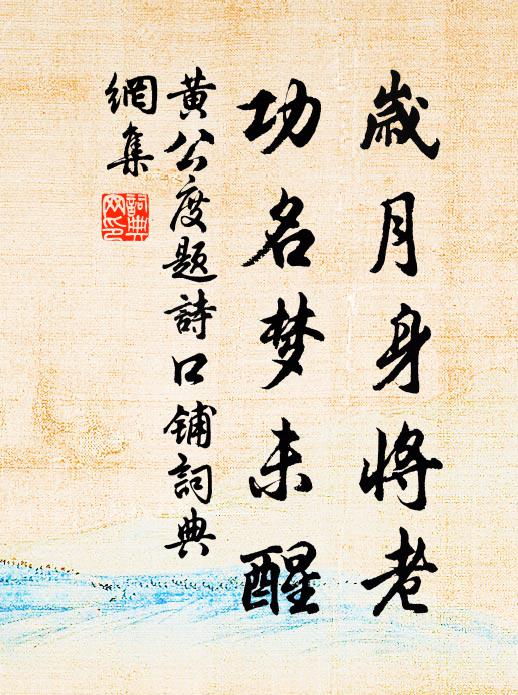 歲月身將老
功名梦未醒
黄公度題詩口鋪詞典
網集
詞典網印